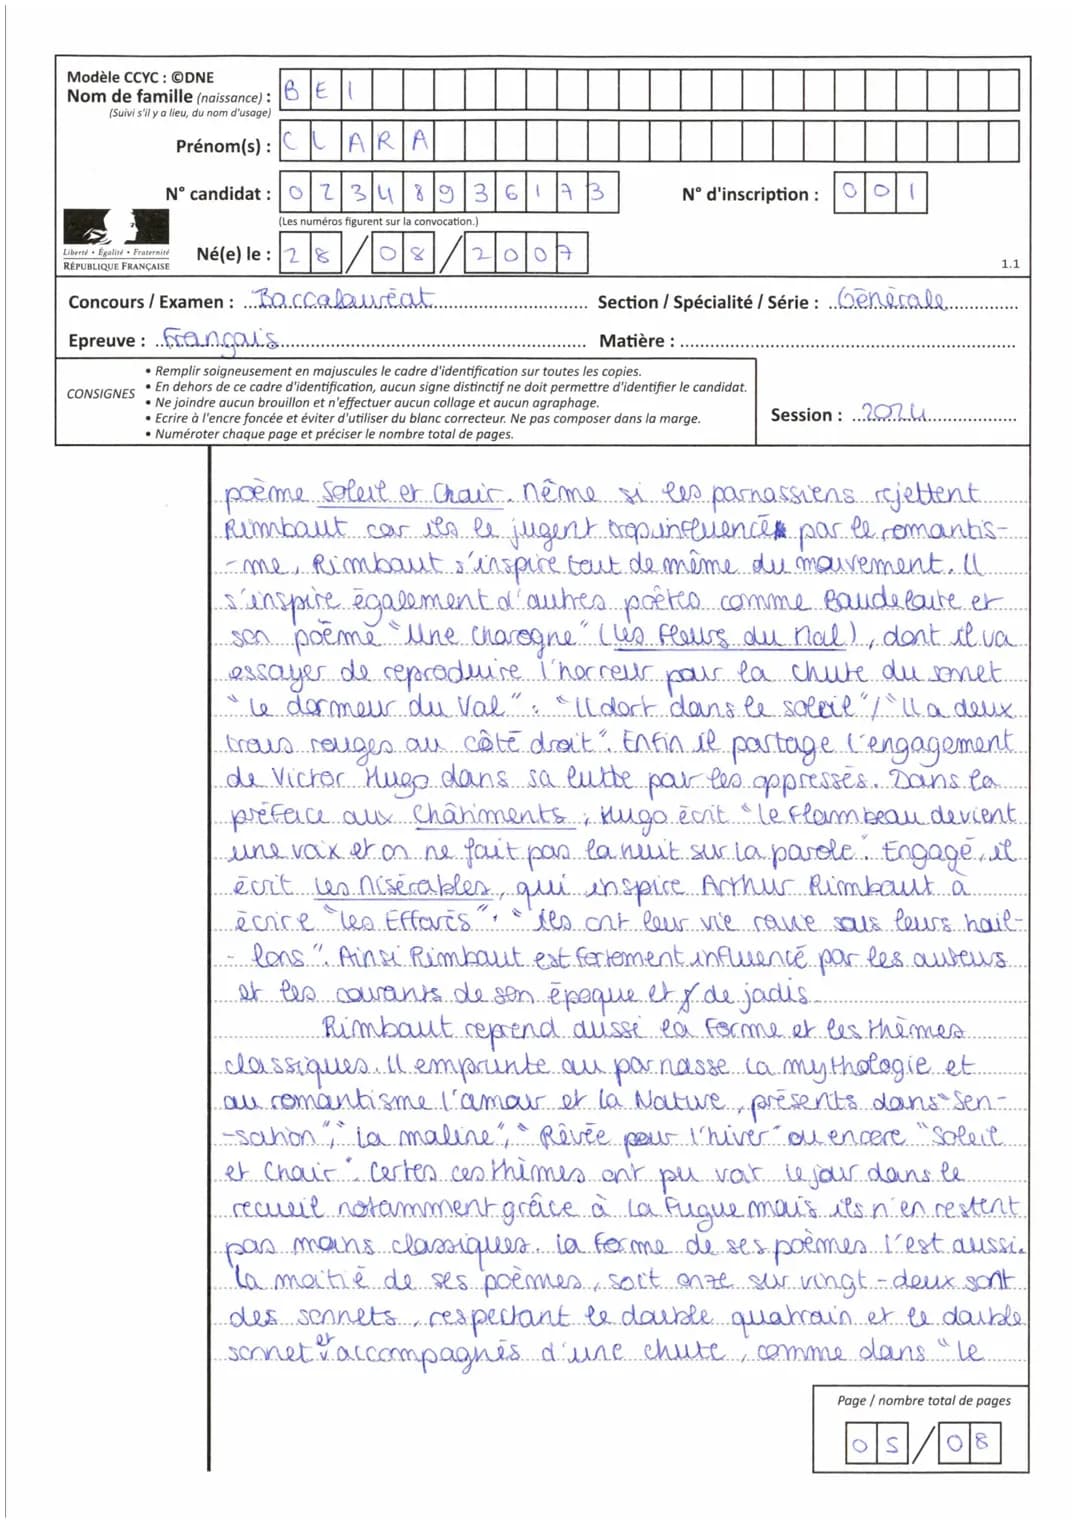 Modèle CCYC : ©DNE
Nom de famille (naissance) : BEI
(Suivi s'il y a lieu, du nom d'usage)
Prénom(s) : CLARA
N° candidat : 02348936173
N° d'inscription : 001
(Les numéros figurent sur la convocation.)
Né(e) le : 28/08/2007
Liberté • Égalité • Fraternité
RÉPUBLIQUE FRANÇAISE
1.1
Concours / Examen : Baccalauréat
Section / Spécialité / Série : Générale
Epreuve : Français
Matière :
CONSIGNES
• Remplir soigneusement en majuscules le cadre d'identification sur toutes les copies.
• En dehors de ce cadre d'identification, aucun signe distinctif ne doit permettre d'identifier le candidat.
• Ne joindre aucun brouillon et n'effectuer aucun collage et aucun agraphage.
• Ecrire à l'encre foncée et éviter d'utiliser du blanc correcteur. Ne pas composer dans la marge.
• Numéroter chaque page et préciser le nombre total de pages.
Session : 2024
poème Soleil et Chair. Même si les parnassiens rejettent
Rimbaut car ils le jugent trop influencé par le romantis-
-me, Rimbaut s'inspire tout de même du mouvement. Il
s'inspire également d'autres poètes comme Baudelaire et
son poème "Une charogne" (Les Fleurs du Mal), dont il va
essayer de reproduire l'horreur pour la chute du sonet
"Le dormeur du Val" : "Il dort dans le soleil"/"Il a deux
trous rouges au côté droit". Enfin il partage l'engagement
de Victor Hugo dans sa lutte par les oppressés. Dans la
préface aux Châtiments, Hugo écrit "le flambeau devient
une voix et on ne fait pas la nuit sur la parole". Engagé, il
écrit Les Misérables, qui inspire Arthur Rimbaut à
écrire "Les Effarés" : "ils ont leur vie roue sous leurs hail-
- lons". Ainsi Rimbaut est fortement influencé par les auteurs
et les courants de son époque et de jadis.
Rimbaut reprend aussi la forme et les thèmes
classiques. Il emprunte au parnasse la mythologie et
au romantisme l'amour et la Nature, présents dans "Sen-
-sation", "La maline", "Rêvée pour l'hiver" ou encore "Soleil
et Chair". Certes ces thèmes ont pu voir le jour dans le
recueil notamment grâce à la fugue mais ils n'en restent
pas moins classiques. La forme de ses poèmes l'est aussi.
La moitié de ses poèmes, soit onze sur vingt-deux sont
des sonnets, respectant le double quatrain et le double
sonnet et accompagnés d'une chute, comme dans "Le
Page / nombre total de pages
05/08